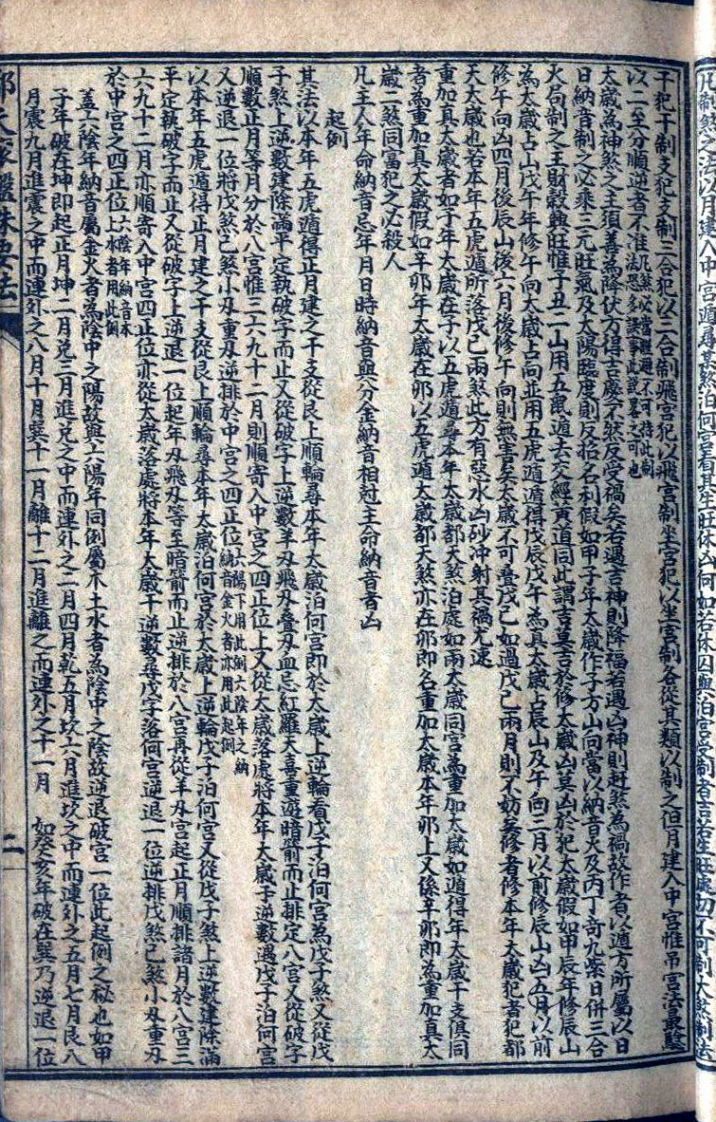 凡制煞之法以月建入中宮遁尋其煞泊何宮看其生旺休囚何如若休囚與泊宮受制者吉若生旺處切不可制大煞制法
干犯干制支犯支制三合犯以三合制飛宮犯以飛宮制坐宮犯以坐宮制各從其類以制之但月建入中宮惟吊宮法最驗
以二至分順逆者不准凡煞必當避不可恃此制
太歲為神煞之主須善為降伏方得吉慶不然反受禍矣若遇吉神則降福若遇凶神則赶煞為禍故作者以遁方所屬以日
日納音制之必乘三元旺氣及太陽臨度則反招名利假如甲子年太歲作子方山向當以納音火及丙丁奇九紫日併三合
火局制之主財穀興旺惟子丑二山用五鼠遁去交經黃道同此謂吉莫吉於修太歲凶莫凶於犯太歲假如甲辰年修辰山
為太歲占山戊午年修午向太歲占向並用五虎遁遁得戊辰戊午為真太歲占辰山及午向三月以前修辰山凶五月以前
修午向凶四月後辰山後六月後修午向則無害矣太歲不可疊戊己如過戊己兩月則不妨矣修者修本年太歲犯者犯都
天太歲也若本年五虎遁所落戊己兩煞此方有惡水凶砂冲射其禍尤速
重加真太歲者如子年太歲在子以五虎遁尋本年太歲都天煞泊處如兩太歲同宮為重加太歲如遁得年太歲干支俱同
者為重加真太歲假如辛卯年太歲在卯以五虎遁太歲都天煞亦在卯即名重加太歲本年卯上又係辛卯即為重加真太
歲二煞同宮犯之必殺人
凡主人年命納音忌年月日時納音與分金納音相尅主命納音者凶
起例
其法以本年五虎遁得正月建之干支從艮上順輪尋本年太歲泊何宮即於太歲上逆輪看戊子泊何宮為戊子煞又從戊
子煞上逆數建除滿平定執破字而止又從破字上逆數羊刃飛刃疊刃血忌紅羅天喜重遊暗箭而止排定八宮又從破字
順數正月等月分於八宮惟三六九十二月則順寄入中宮之四正位上又從太歲落處將本年太歲干逆數遇戊子泊何宮
又逆退一位將戊煞己煞小刃重刃逆排於中宮之四正位六陽下用此例六陰年之納音屬金火者亦用此起例
以本年五虎遁得正月建之干支從艮上順輪尋本年太歲泊何宮於太歲上逆輪戊子泊何宮又從戊子煞上逆數建除滿
平定執破字而止又從破字上逆退一位起年刃飛刃等至暗箭而止逆排於八宮再從羊刃宮起正月順排諸月於八宮三
六九十二月亦順寄入中宮四正位亦從太歲落處將本年太歲干逆數尋戊字落何宮逆退一位逆排戊煞己煞小刃重刃
於中宮之四正位上六陰年納音木水者用此例
蓋六陰年納音屬金火者為陰中之陽故與六陽年同倒屬木土水者為陰中之陰故逆退破宮一位此起例之秘也如甲
子年破在坤即起正月坤二月兌三月進兌之中而連外之二月四月乾五月坎六月進坎之中而連外之五月七月艮八
月震九月進震之中而連外之八月十月巽十一月離十二月進離之而連外之十一月 如癸亥年破在巽乃逆退一位
二